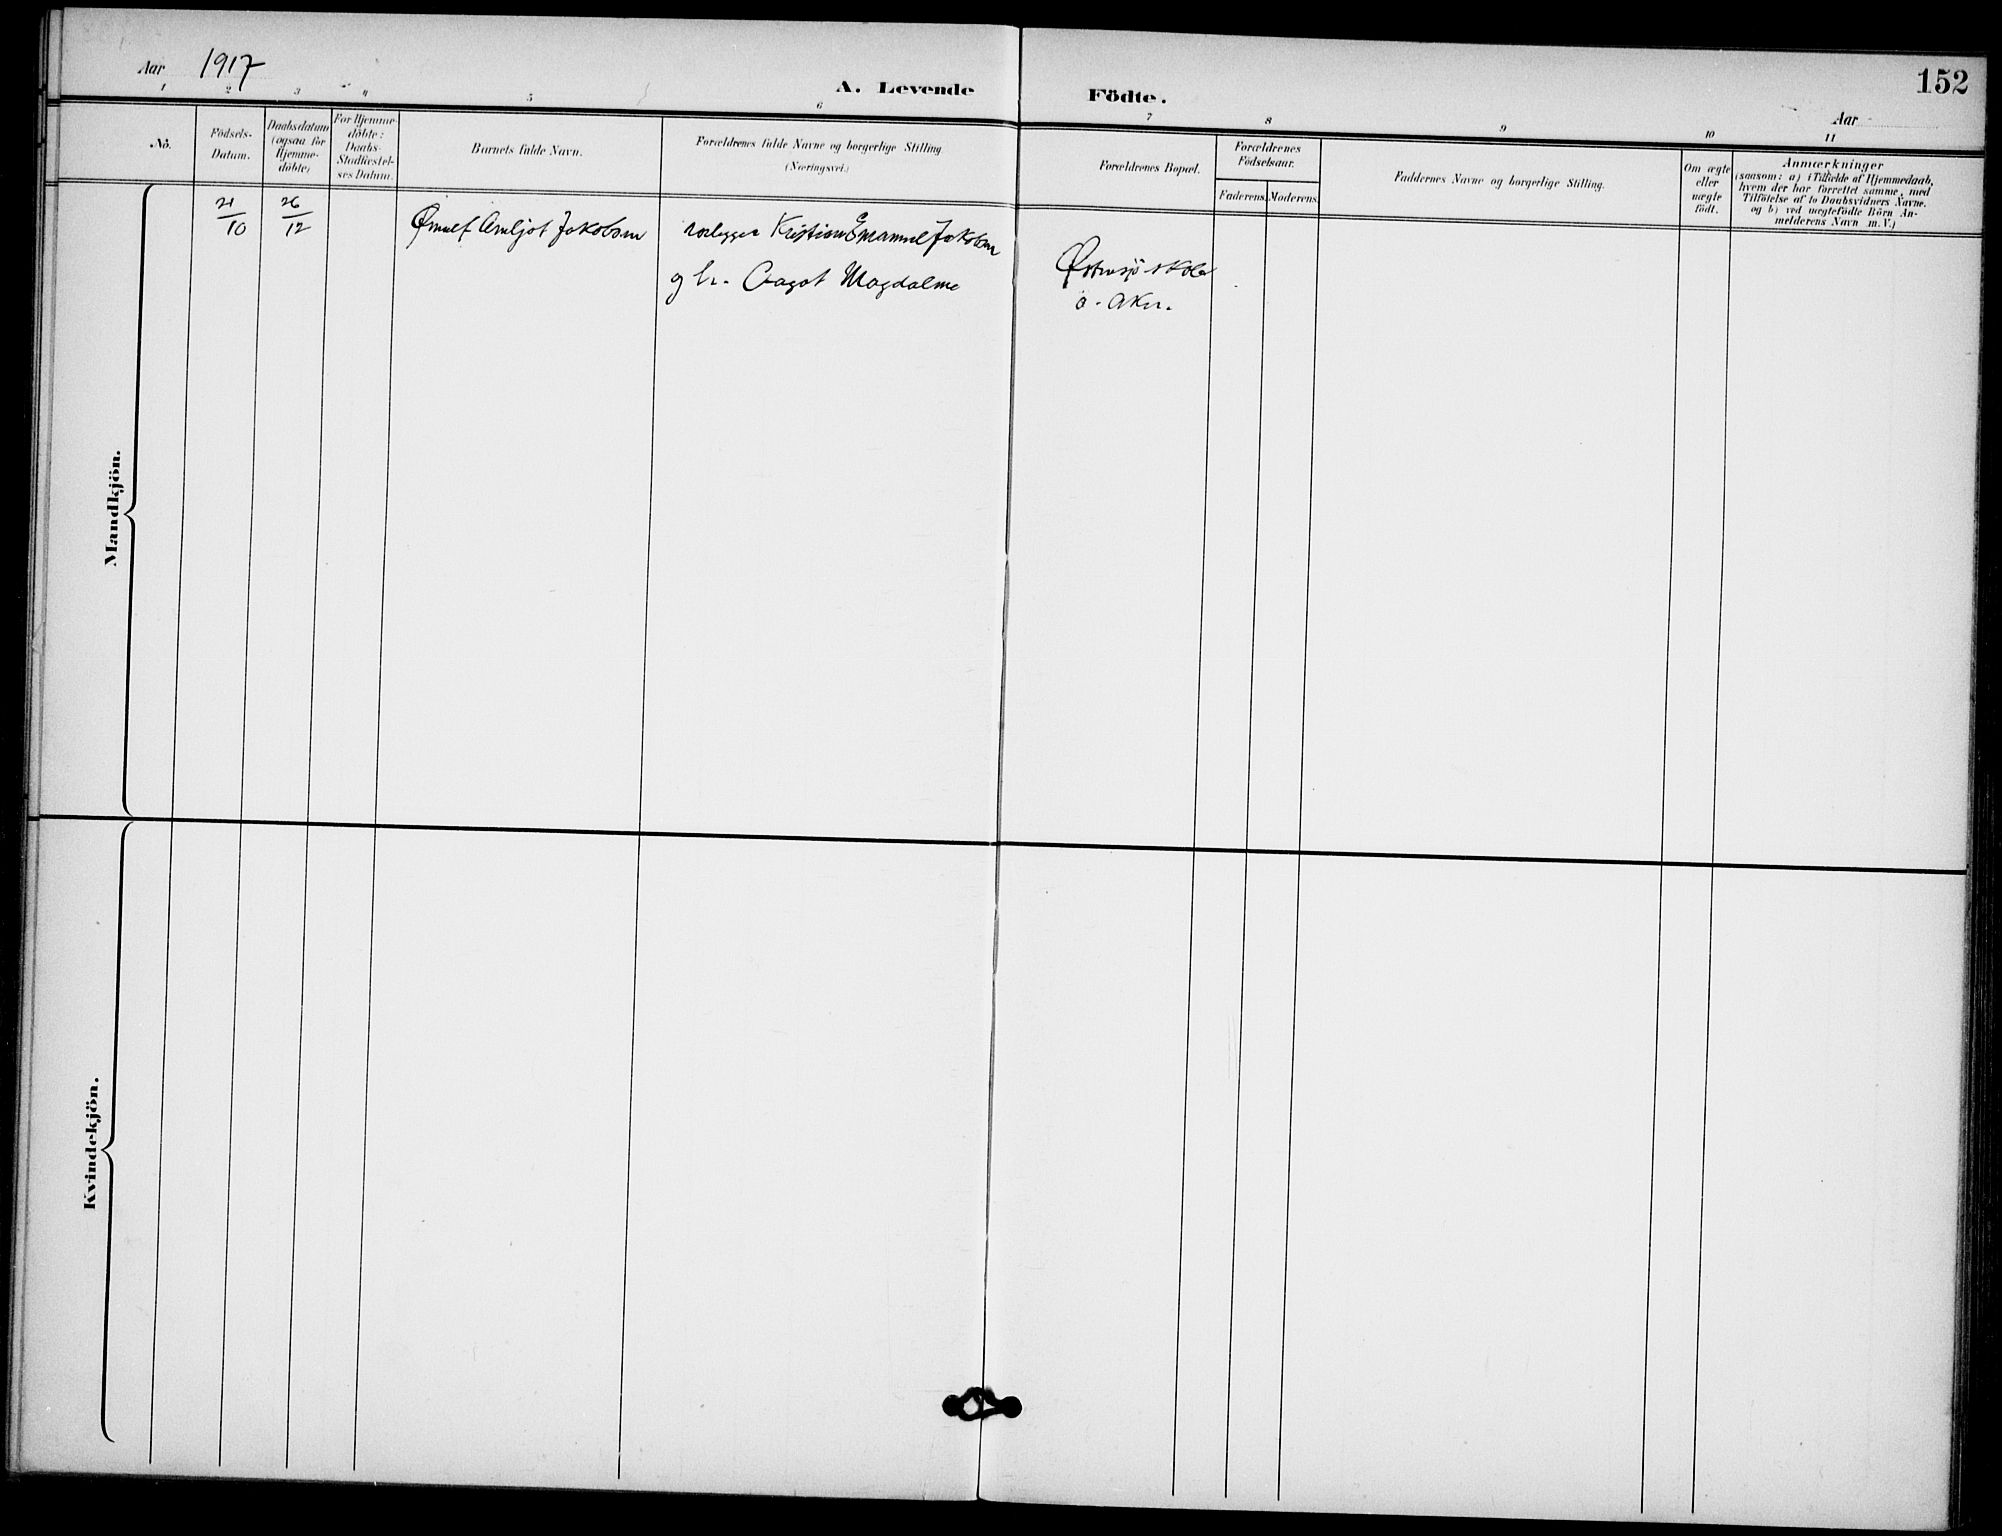 Aar 1917
A. Levende Födte.
152
Aar
1 2 3 4 5 6 7 8 9 10 11
No.
Födsels-
Datum.
Daabsdatum
(ogsaa for
Hjemme-
döbte)
For Hjemme-
döbte:
Daabs-
Stadfæstel-
ses Datum.
Barnets fulde Navn.
Forældrenes fulde Navne og borgerlige Stilling
(Næringsvei.)
Forældrenes Bopæl.
Forældrenes
Födselsaar.
Faderens. Moderens.
Faddernes Navne og borgerlige Stilling.
Om ægte
eller
uægte
födt.
Anmærkninger
(saasom: a) i Tilfælde af Hjemmedaab,
hvem der har forrettet samme, med
Tilföielse af to Daabsvidners Navne.
og b) ved uægtefödte Börn An-
melderens Navn m. V.)
Mandkjön.
21/10 26/12 Ørnulf Arnljot Jakobsen
rørlegger Kristian Emanuel Jakobsen
og h. Aagot Magdalene
Østensjø skole
ø. Aker.
Kvindekjön.